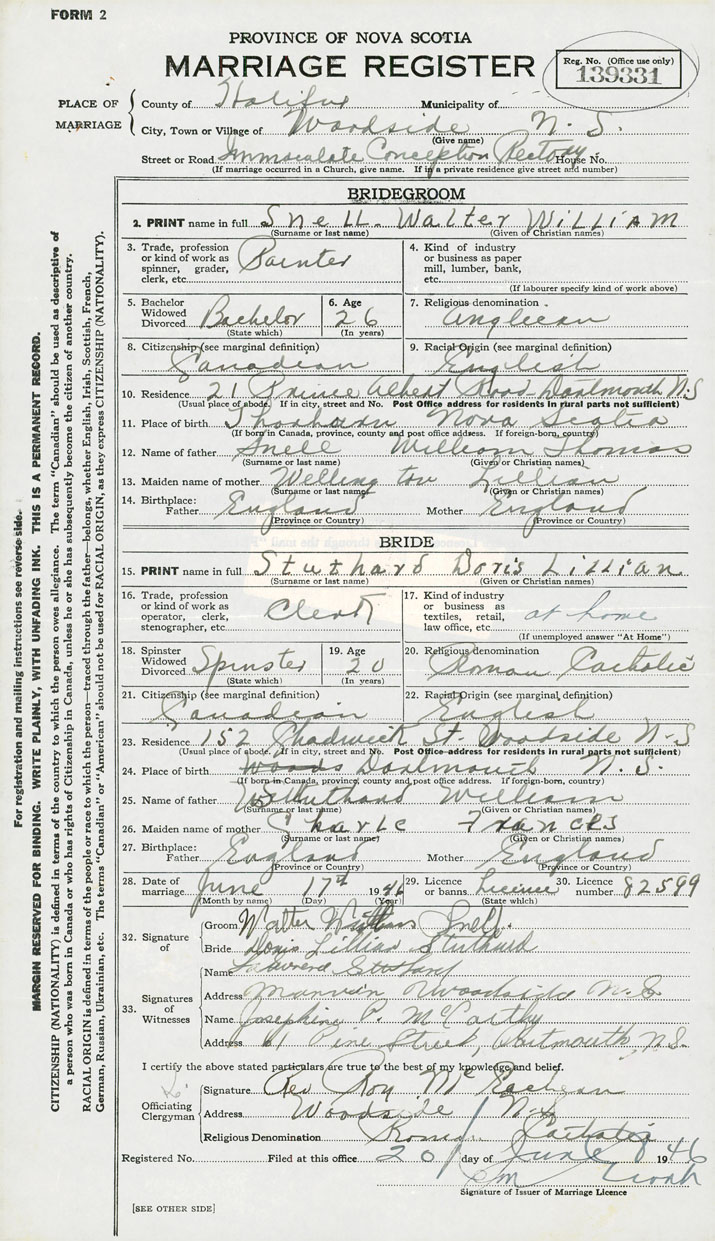 FORM 2
PROVINCE OF NOVA SCOTIA
MARRIAGE REGISTER
Reg. No. (Office use only)
139331
PLACE OF MARRIAGE
County of Halifax Municipality of
City, Town or Village of Woodside N. S.
(Give name)
Street or Road Immaculate Conception Rectory House No.
(If marriage occurred in a Church, give name. If in a private residence give street and number)
BRIDEGROOM
2. PRINT name in full Snell Walter William
(Surname or last name) (Given or Christian names)
3. Trade, profession or kind of work as spinner, grader, clerk, etc. Painter
4. Kind of industry or business as paper mill, lumber, bank, etc.
(If labourer specify kind of work above)
5. Bachelor Widowed Divorced Bachelor
(State which)
6. Age 26
(In years)
7. Religious denomination Anglican
8. Citizenship (see marginal definition) Canadian
9. Racial Origin (see marginal definition) English
10. Residence 21 Prince Albert Road Dartmouth N.S
(Usual place of abode. If in city, street and No. Post Office address for residents in rural parts not sufficient)
11. Place of birth Nova Scotia
(If born in Canada, province, county and post office address. If foreign-born, country)
12. Name of father Snell William Thomas
(Surname or last name) (Given or Christian names)
13. Maiden name of mother Welling ton Lillian
(Surname or last name) (Given or Christian names)
14. Birthplace: Father England Mother England
(Province or Country) (Province or Country)
BRIDE
15. PRINT name in full Stuthard Doris Lillian
(Surname or last name) (Given or Christian names)
16. Trade, profession or kind of work as operator, clerk, stenographer, etc. Clerk
17. Kind of industry or business as textiles, retail, law office, etc. at home
(If unemployed answer "At Home")
18. Spinster Widowed Divorced Spinster
(State which)
19. Age 20
(In years)
20. Religious denomination Roman Catholic
21. Citizenship (see marginal definition) Canadian
22. Racial Origin (see marginal definition) English
23. Residence 152 Chadwick St. Woodside N-S
(Usual place of abode. If in city, street and No. Post Office address for residents in rural parts not sufficient)
24. Place of birth Dartmouth N. S.
(If born in Canada, province, county and post office address. If foreign-born, country)
25. Name of father Stuthard William
(Surname or last name) (Given or Christian names)
26. Maiden name of mother Frances
(Surname or last name) (Given or Christian names)
27. Birthplace: Father England Mother England
(Province or Country) (Province or Country)
28. Date of marriage June 17th 1946
(Month by name) (Day) (Year)
29. Licence or banns Licence
(State which)
30. Licence number 82599
32. Signature of
Groom Walter William Snell.
Bride Doris Lillian Stuthard
33. Signatures of Witnesses
Name
Address Woodside N. S
Name Josephine P. McCarthy
Address 61 Pine Street, Dartmouth, N.S.
I certify the above stated particulars are true to the best of my knowledge and belief.
Officiating Clergyman
Signature Rev Roy
Address Woodside N.S
Religious Denomination Roman Catholic
Registered No. Filed at this office 20 day of June 1946
Signature of Issuer of Marriage Licence
[SEE OTHER SIDE]
For registration and mailing instructions see reverse side.
MARGIN RESERVED FOR BINDING. WRITE PLAINLY, WITH UNFADING INK. THIS IS A PERMANENT RECORD.
CITIZENSHIP (NATIONALITY) is defined in terms of the country to which the person owes allegiance. The term "Canadian" should be used as descriptive of
a person who was born in Canada or who has rights of Citizenship in Canada, unless he or she has subsequently become the citizen of another country.
RACIAL ORIGIN is defined in terms of the people or race to which the person—traced through the father—belongs, whether English, Irish, Scottish, French,
German, Russian, Ukrainian, etc. The terms "Canadian" or "American" should not be used for RACIAL ORIGIN, as they express CITIZENSHIP (NATIONALITY).